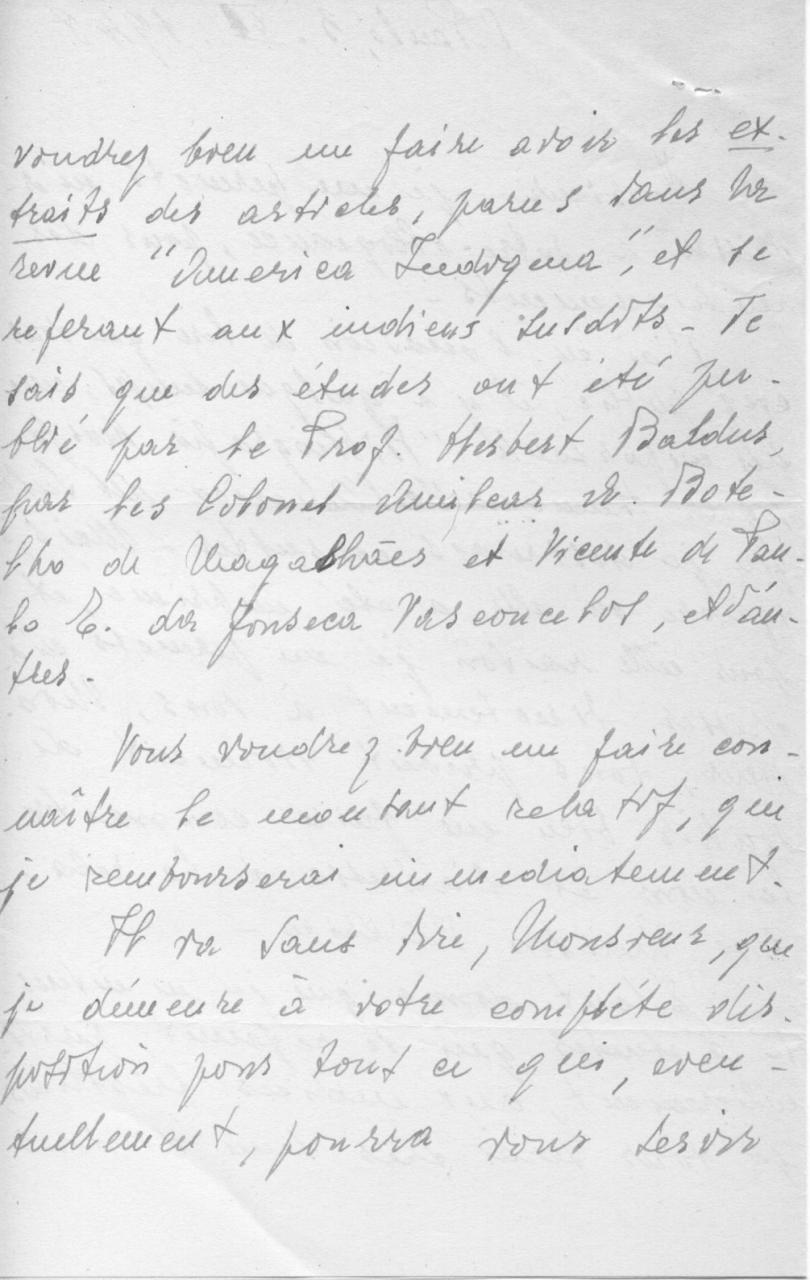 voudrez bien me faire avoir les ex-
traits des articles, parus dans la
revue "America Indigena", et se
referant aux indiens susdits - Je
sais que des études ont été pu-
blié par le Prof. Herbert Baldus,
par les Colonel Amilcar A. Bote-
lho de Magalhães et Vicente de Pau-
lo T. da Fonseca Vasconcelos, et d'au-
tres -
Vous voudrez bien me faire con-
naître le montant relatif, que
je rembourserai immediatement.
Il va sans dire, Monsieur, que
je démeure à votre compléte dis-
position pour tout ce qui, even-
tuellement, pourra vous servir